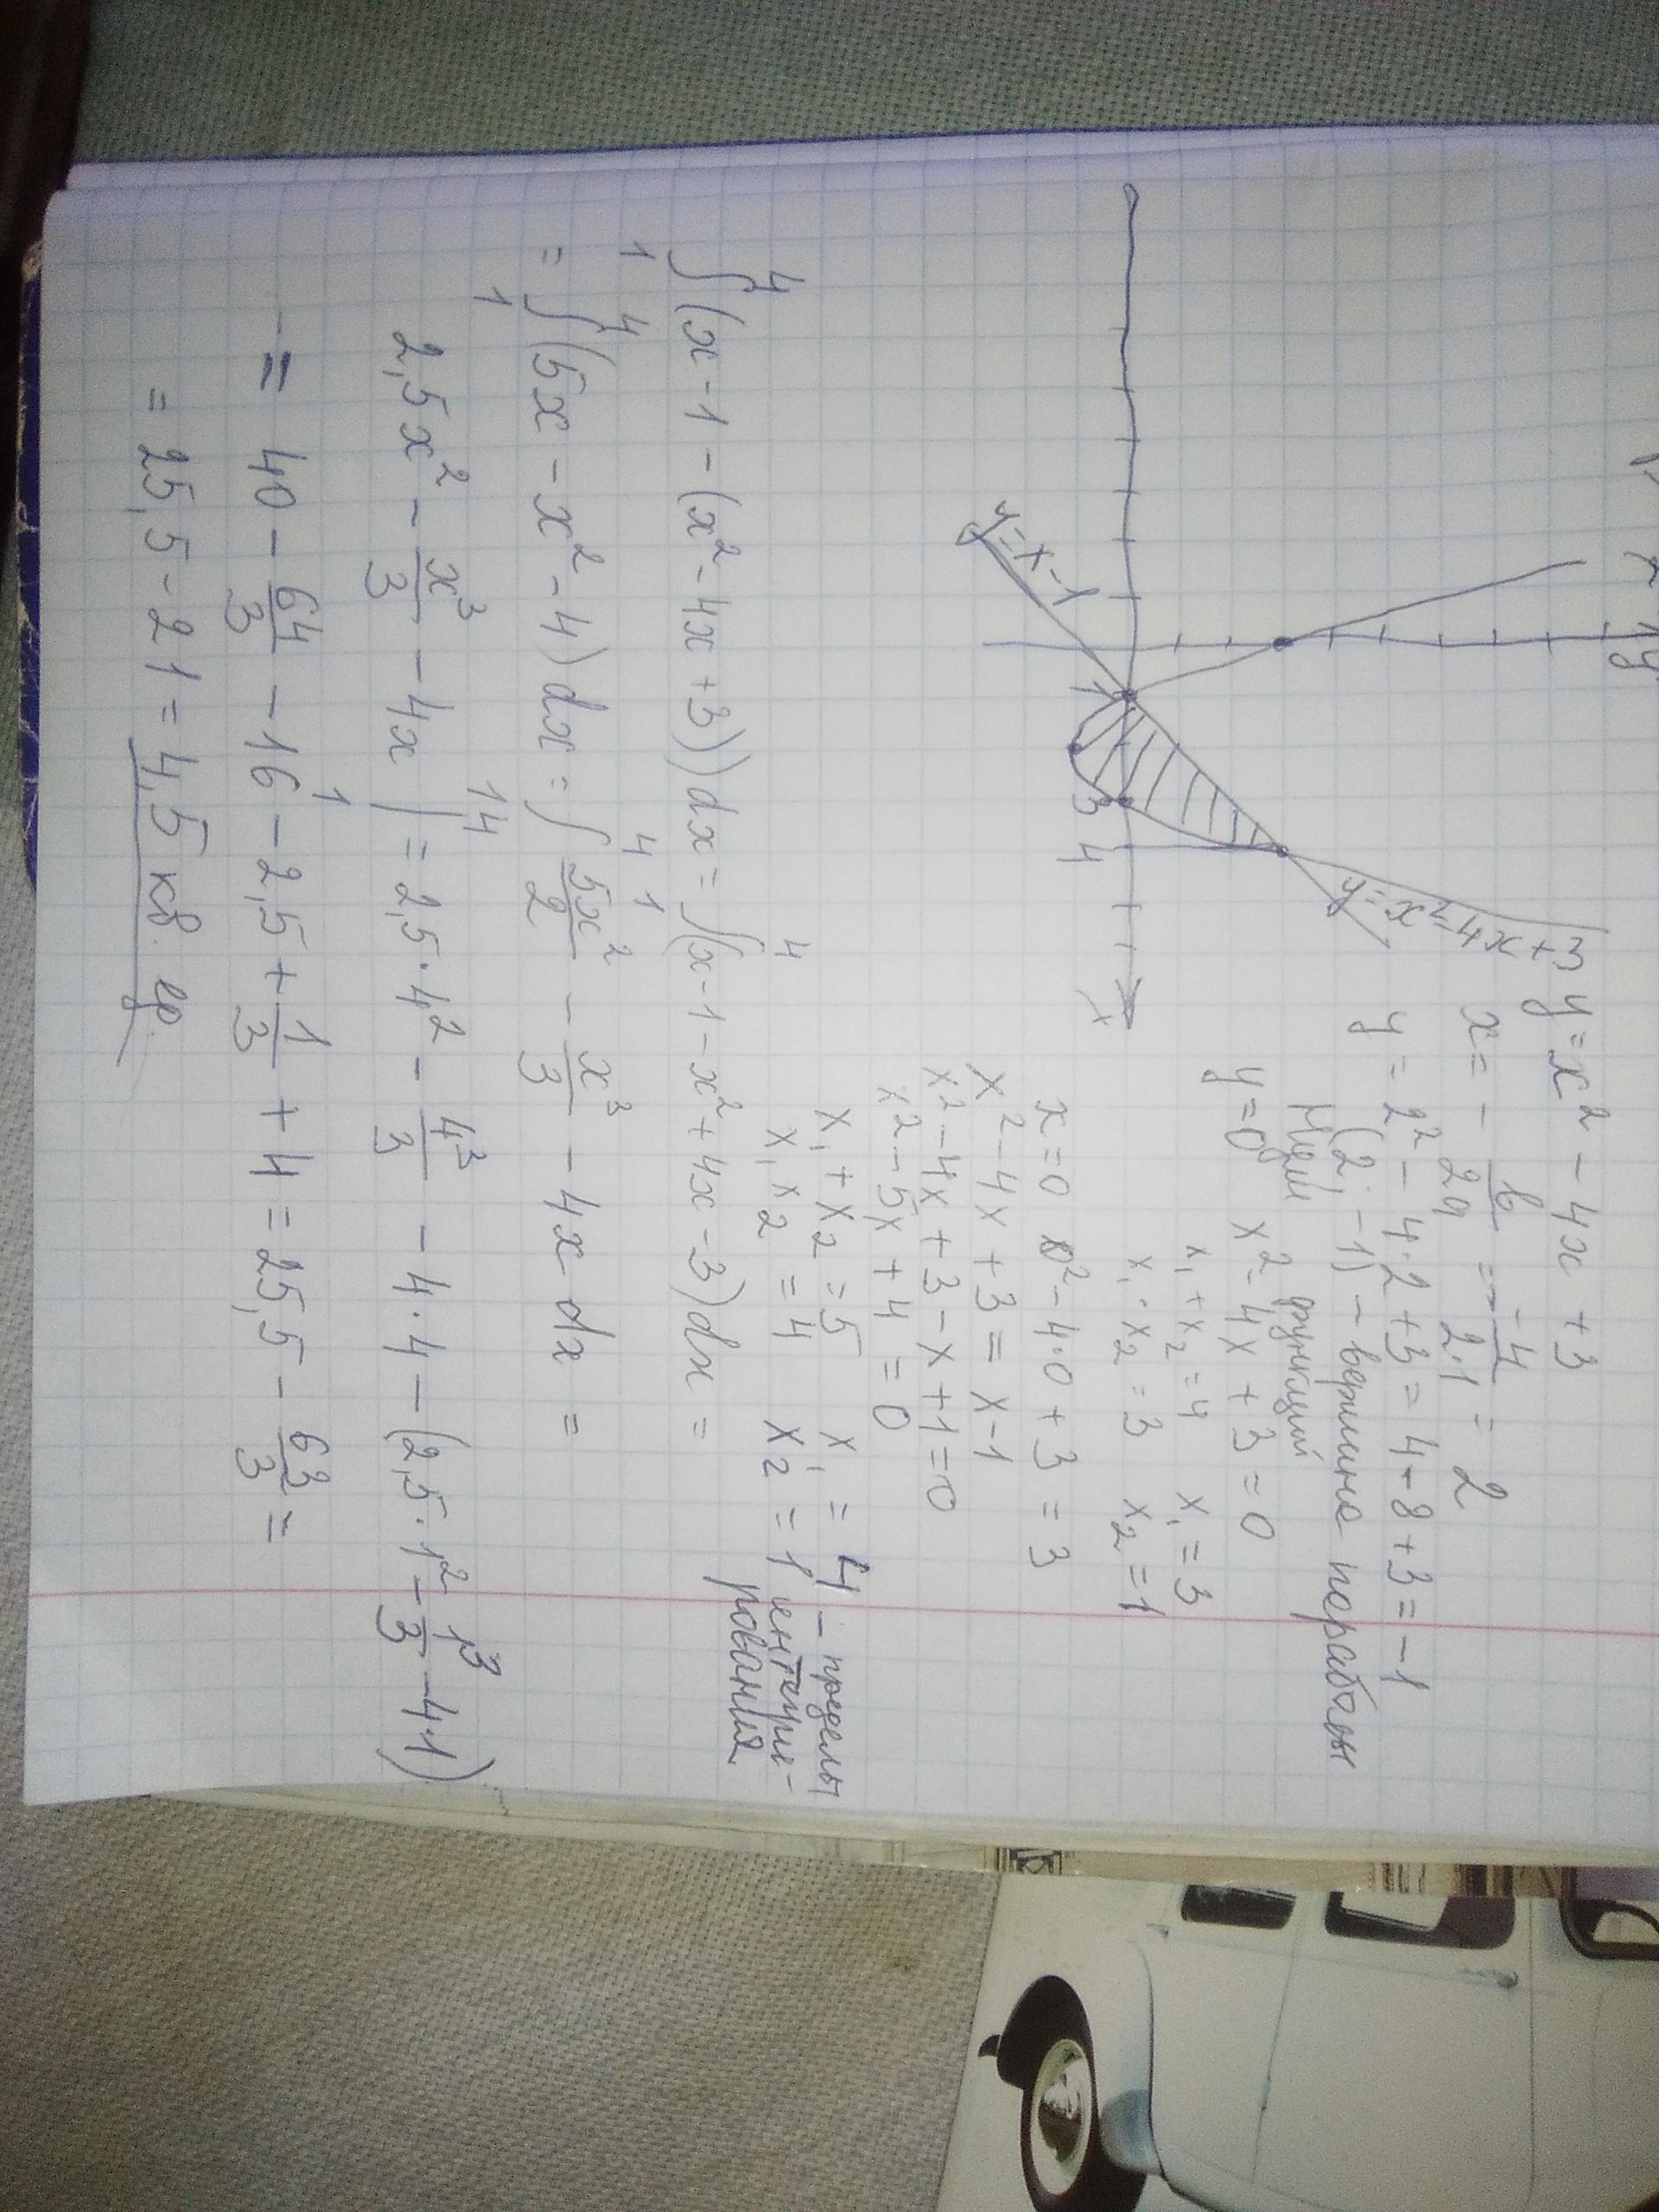 y
y = x² - 4x + 3
y = x² - 4x + 3
x = - b/2a = - -4/2·1 = 2
y = 2² - 4·2 + 3 = 4 - 8 + 3 = -1
(2; -1) - вершина параболы
Нули функции
y = 0 x² - 4x + 3 = 0
x₁ + x₂ = 4 x₁ = 3
x₁ · x₂ = 3 x₂ = 1
y = x - 1
1 3 4 x
x = 0 0² - 4·0 + 3 = 3
x² - 4x + 3 = x - 1
x² - 4x + 3 - x + 1 = 0
x² - 5x + 4 = 0
x₁ + x₂ = 5 x₁ = 4 - пределы
x₁ x₂ = 4 x₂ = 1 интегри-
рования
∫₁⁴ (x - 1 - (x² - 4x + 3)) dx = ∫₁⁴ (x - 1 - x² + 4x - 3) dx =
= ∫₁⁴ (5x - x² - 4) dx = ∫₁⁴ 5x²/2 - x³/3 - 4x dx =
2,5x² - x³/3 - 4x |₁⁴ = 2,5·4² - 4³/3 - 4·4 - (2,5·1² - 1³/3 - 4·1)
= 40 - 64/3 - 16 - 2,5 + 1/3 + 4 = 25,5 - 63/3 =
= 25,5 - 21 = 4,5 кв. ед.